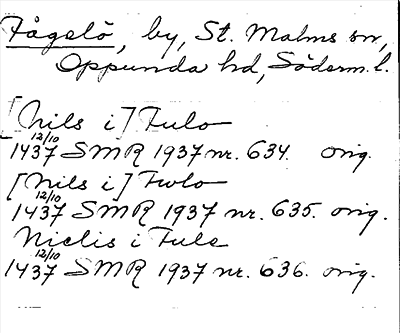 Fågelö, by, St. Malms sn,
Oppunda hd, Söderm. l.
[Nils i] Fulo
1437 12/10 SMR 1937 nr. 634. orig.
[Nils i] Fwlo
1437 12/10 SMR 1937 nr. 635. orig.
Niclis i Fule
1437 12/10 SMR 1937 nr. 636. orig.